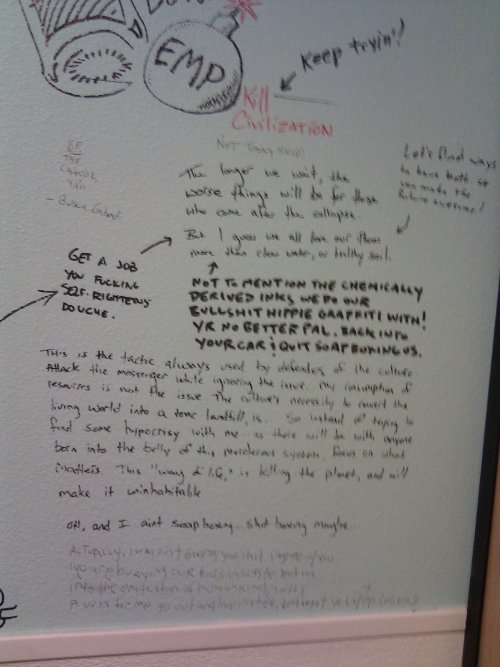 EMP
Keep tryin'!
Kill
Civilization
Not Today Ship!
BE
THE
CHANGE
YOU
Let's find ways
to have both so we
can make the
future awesome!
The longer we wait, the
worse things will be for those
who come after the collapse.
But I guess we all love our iPhones
more than clean water, or healthy soil.
GET A JOB
YOU FUCKING
SELF-RIGHTEOUS
DOUCHE.
NOT TO MENTION THE CHEMICALLY
DERIVED INKS WE DO OUR
BULLSHIT HIPPIE GRAFFITI WITH!
YR NO BETTER PAL. BACK INTO
YOUR CAR & QUIT SOAPBOXING US.
This is the tactic always used by defenders of the culture
Attack the messenger while ignoring the issue. My consumption of
resources is not the issue The culture's necessity to convert the
living world into a toxic landfill, is. So instead of trying to
find some hypocrisy with me.. as there will be with anyone
born into the belly of this murderous system. focus on what
matters This "way of life," is killing the planet, and will
make it uninhabitable
oh, and I aint soap boxing... shit boxing maybe.
Actually, I was just giving you shit
into the